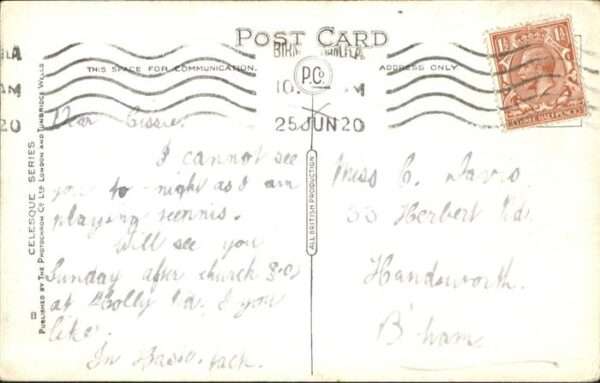 POST CARD
THIS SPACE FOR COMMUNICATION.
ADDRESS ONLY
P.Co
25 JUN 20
Dear Cissie,
I cannot see
you to-night as I am
playing tennis.
Will see you
Sunday after church 8-0
at Holly Rd. if you
like.
In haste.
Miss C. Davis
Herbert Rd.
Handsworth.
B'ham
ALL BRITISH PRODUCTION
CELESQUE SERIES
PUBLISHED BY THE PHOTOCHROM CO LTD LONDON AND TUNBRIDGE WELLS